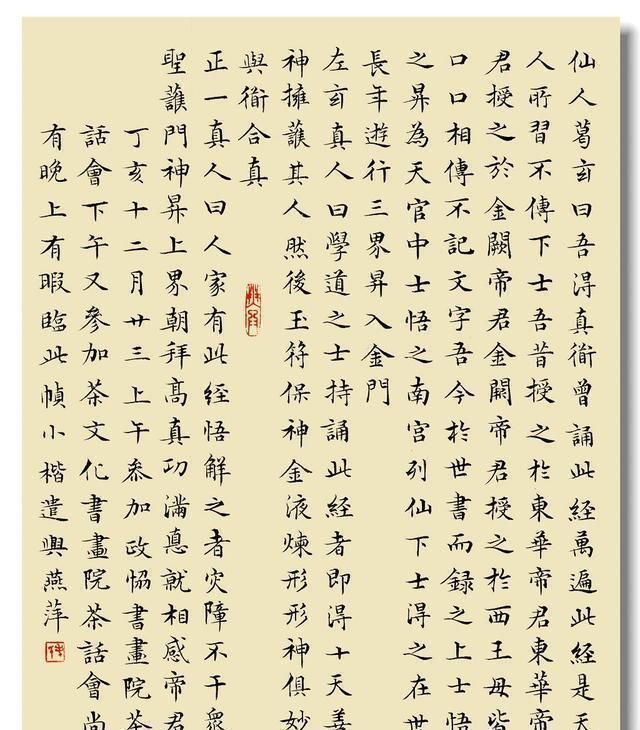 仙人葛玄曰吾淂真衜曾誦此經萬遍此經是天
人所習不傳下士吾昔授之於東華帝君東華帝
君授之於金闕帝君金闕帝君授之於西王母皆
口口相傳不記文字吾今於世書而録之上士悟
之昇為天官中士悟之南宮列仙下士得之在世
長年遊行三界昇入金門
左玄真人曰學道之士持誦此經者即得十天善
神擁護其人然後玉符保神金液煉形形神俱妙
與衜合真
正一真人曰人家有此經悟解之者灾障不干眾
聖護門神昇上界朝拜高真功滿悳就相感帝君
丁亥十二月廿三上午参加政協書畫院茶
話會下午又參加茶文化書畫院茶話會尚
有晚上有暇臨此幀小楷遣興燕萍